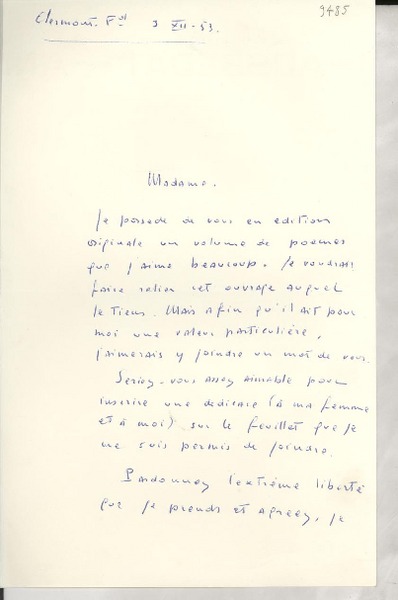 9485
Clermont-Fd 3 XII-53.
Madame.
Je possède de vous en edition
originale un volume de poemes
que j'aime beaucoup. Je voudrais
faire relier cet ouvrage auquel
je tiens. Mais afin qu'il ait pour
moi une valeur particulière,
j'aimerais y joindre un mot de vous.
Seriez-vous assez aimable pour
inscrire une dedicace (à ma femme
et à moi) sur le feuillet que je
me suis permis de joindre.
Pardonnez l'extrême liberté
que je prends et agreez, je